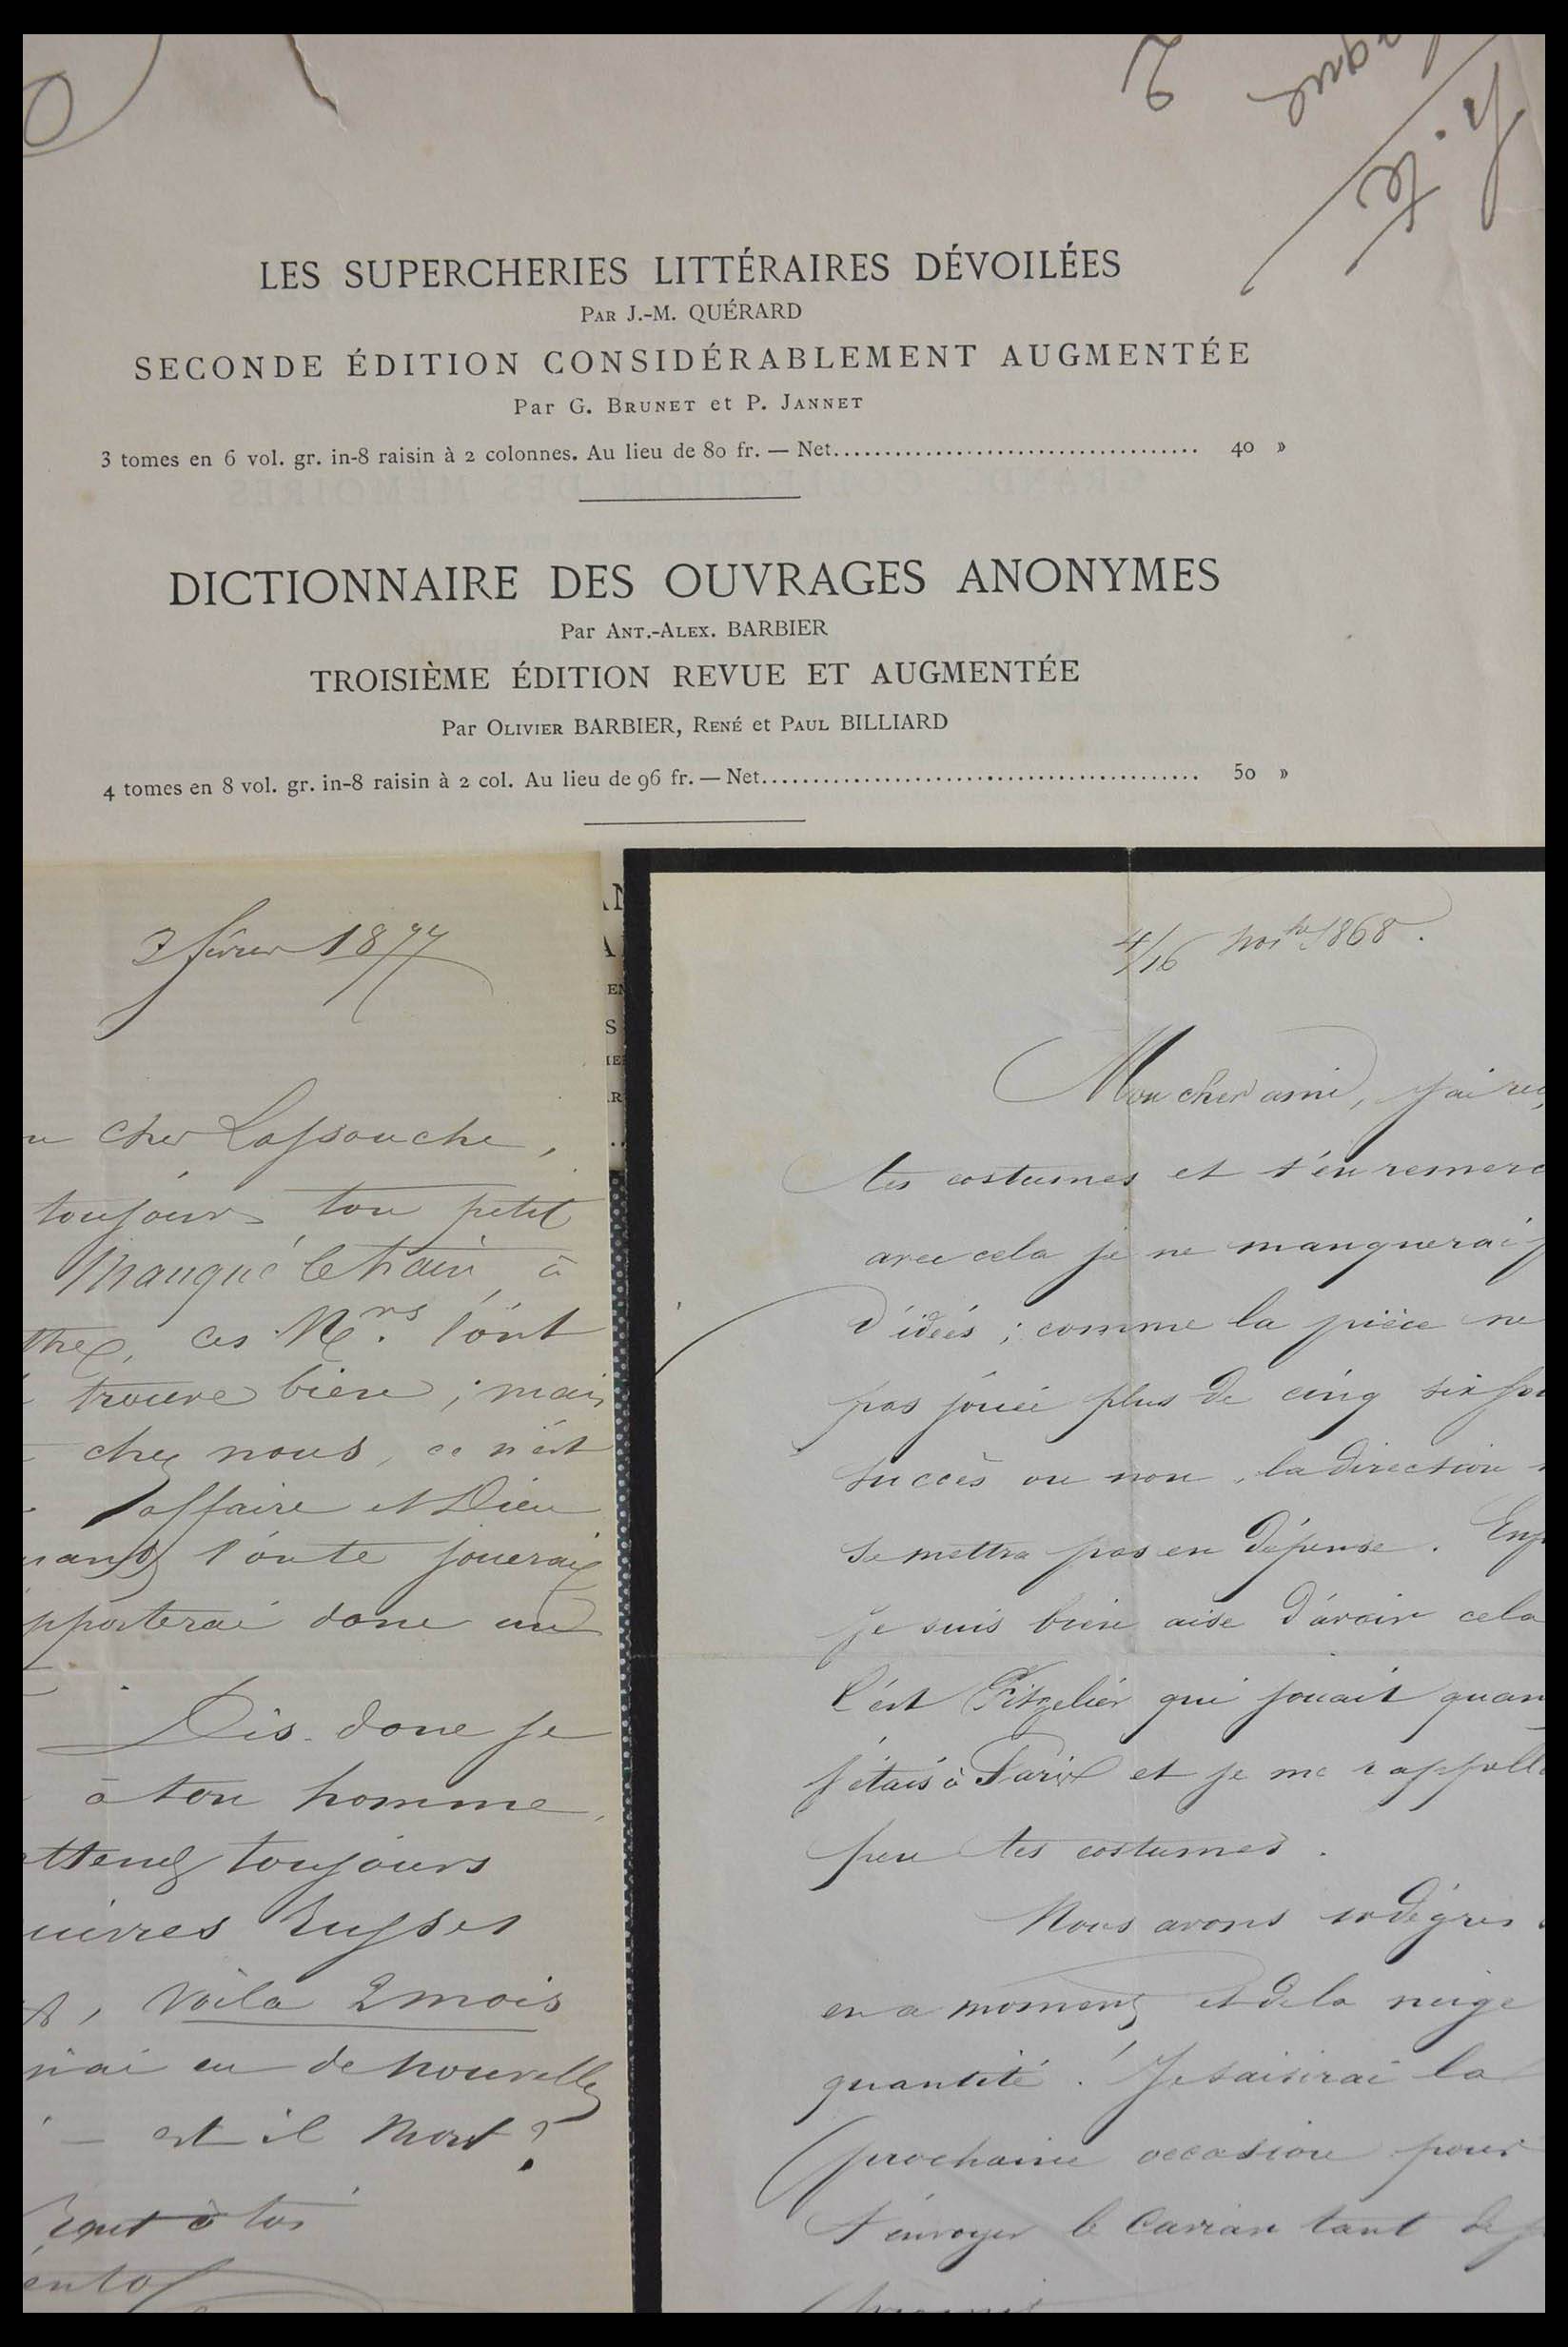 2
LES SUPERCHERIES LITTÉRAIRES DÉVOILÉES
Par J.-M. QUÉRARD
SECONDE ÉDITION CONSIDÉRABLEMENT AUGMENTÉE
Par G. Brunet et P. Jannet
3 tomes en 6 vol. gr. in-8 raisin à 2 colonnes. Au lieu de 80 fr. — Net.................................... 40 »
DICTIONNAIRE DES OUVRAGES ANONYMES
Par Ant.-Alex. BARBIER
TROISIÈME ÉDITION REVUE ET AUGMENTÉE
Par Olivier BARBIER, René et Paul BILLIARD
4 tomes en 8 vol. gr. in-8 raisin à 2 col. Au lieu de 96 fr. — Net........................................... 50 »
3 février 1877
cher Lassouche,
toujours ton petit
Manqué le train à
ces Mrs. l'ont
trouve bien ; mais
chez nous, ce n'est
l'affaire et Dieu
jouerai
pporterai donc un
Dis-donc je
à ton homme,
ttends toujours
uivres Russes
, Voila 2 mois
n'ai eu de nouvelles
— est il Mort ?
à toi
4/16 1868.
Mon cher ami, j'ai reç
tes costumes et t'en remerc
avec cela je ne manquerai p
d'idées ; comme la pièce ne
pas jouée plus de cinq six foi
succès ou non, la direction n
se mettra pas en dépense. Enf
je suis bien aise d'avoir cela
C'est qui jouait quan
j'étais à Paris et je me rappelle
peu tes costumes.
Nous avons 10 dégrés
en a moment et de la neige
quantité ! Je saisirai la
prochaine occasion pour
t'envoyer le Caviar tant de